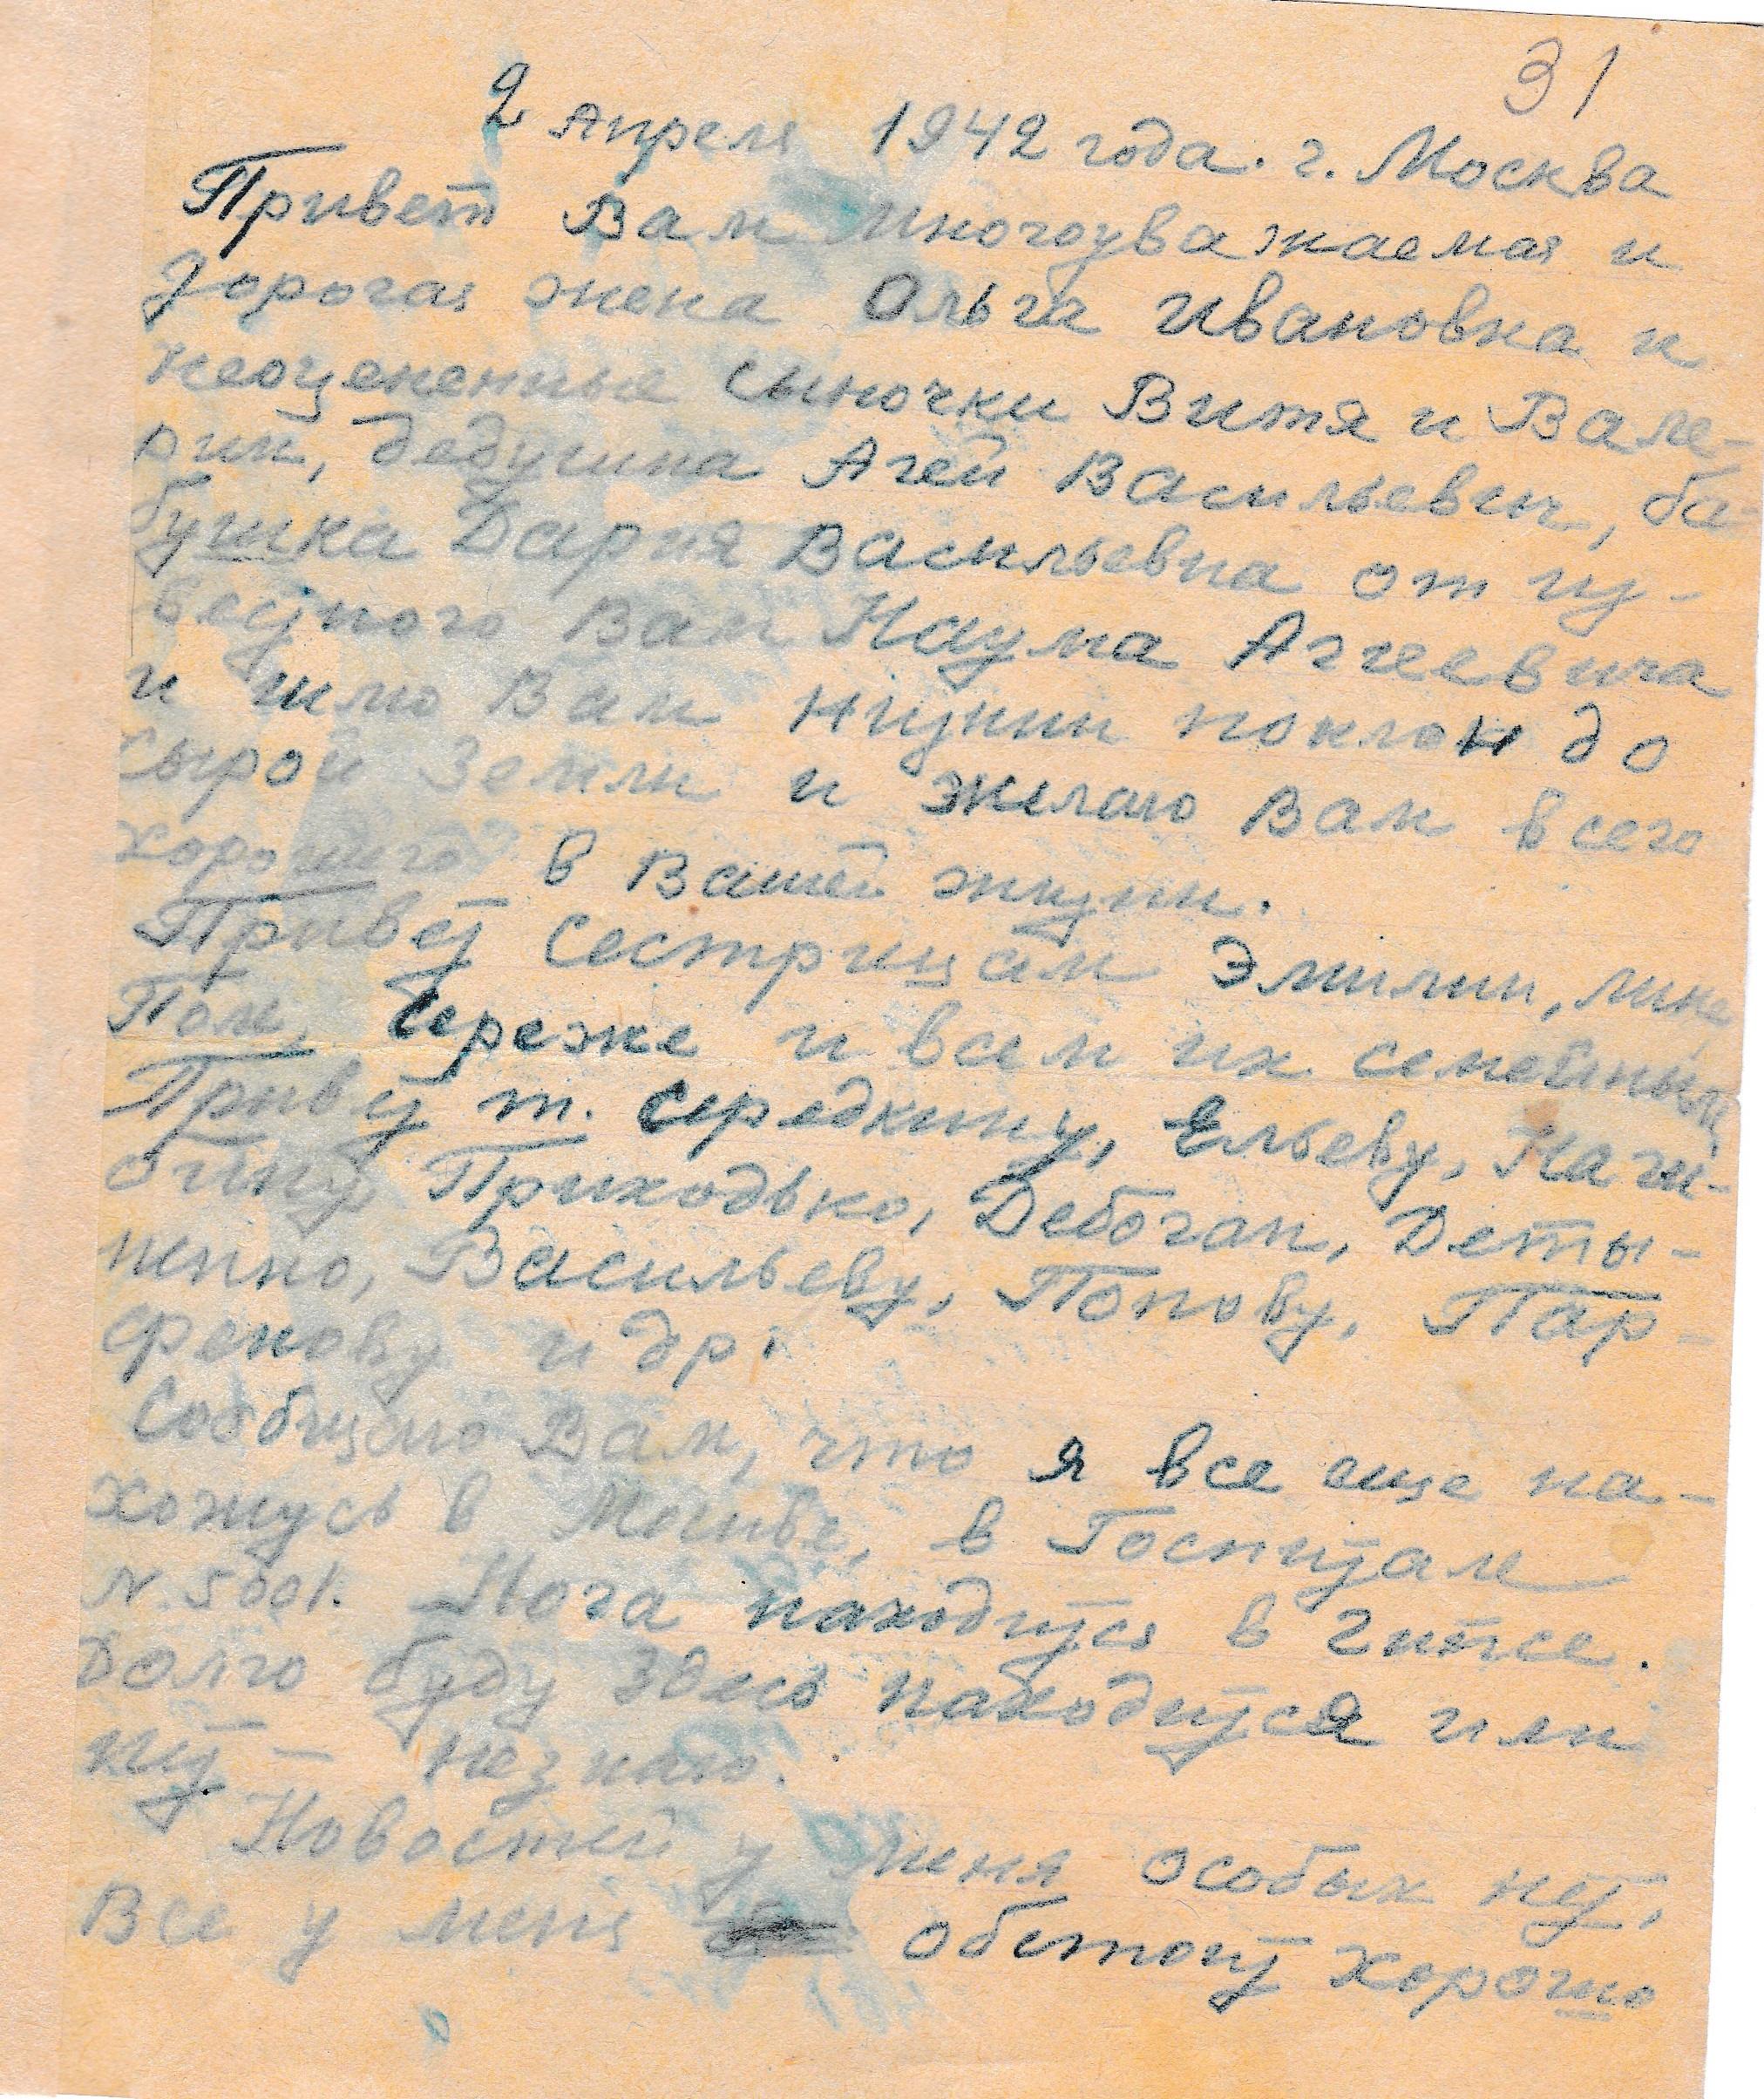 31
2 Апреля 1942 года. г. Москва
Привет Вам многоуважаемая и
дорогая жена Ольга Ивановна и
неоцененные сыночки Витя и Вале-
рик, дедушка Агей Васильевич, ба-
бушка Дария Васильевна от из-
весного Вам Наума Аггеевича
и шлю Вам низкий поклон до
сырой земли и желаю Вам всего
хорошего в Вашей жизни.
Привет сестрицам Эмилии, Мине,
Поли, Сереже и всем их семейным
Привет т. Середкину, Ельеву,
Приходько,
Васильеву, Попову, Пар-
фенову и др.
Сообщаю Вам, что я все еще на-
хожусь в Москве, в Госпитале
N. 5001. Нога находится в гипсе.
Долго буду здесь находится или
нет — незнаю.
Новостей у меня особых нет,
Все у меня обстоит хорошо